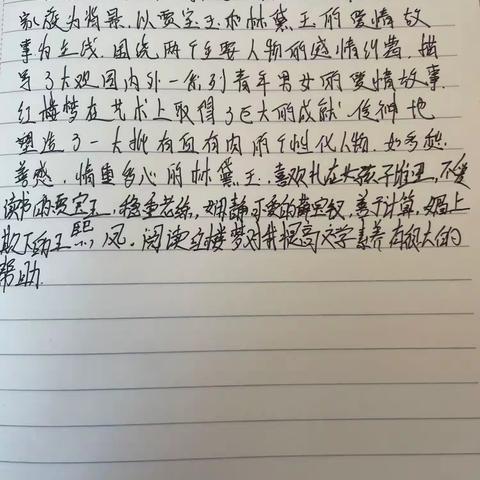 家庭为背景,以贾宝玉和林黛玉的爱情故
事为主线,围绕两个主要人物的感情纠葛,描
写了大观园内外一系列青年男女的爱情故事.
红楼梦在艺术上取得了巨大的成就,作神地
塑造了一大批有血有肉的个性化人物.如多愁
善感,情重多心的林黛玉,喜欢扎在女孩子堆里,不爱
读书的贾宝玉,稳重老练,娴静可爱的薛宝钗,善于计算,媚上
欺下的王熙凤.阅读红楼梦对我提高文学素养有很大的
帮助.